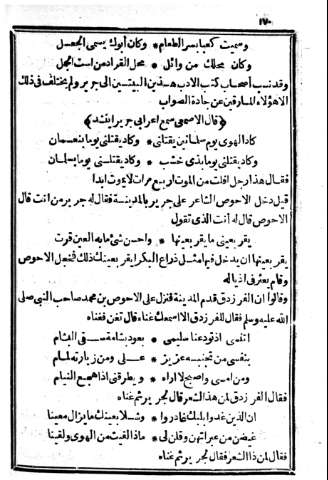 ١٧٠
وسميت كعبا بسر الطعام * وكان أبوك يسمى الجعل
وكان محلك من وائل * محل القراد من است الجمل
وقد نسب أصحاب كتب الادب هذين البيتين الى جرير ولم يختلف فى ذلك
الا هؤلاء المارقين عن جادة الصواب
﴿قال الاصمعى سمع اعرابى جريرا ينشد﴾
كاد الهوى يوم سلمانين يقتلنى * وكاد يقتلنى يوما بنعمان
وكاد يقتلنى يوما بذى خشب * وكاد يقتلنى يوما بسلمان
فقال هذا رجل افلت من الموت اربع مرات لا يموت ابدا
قيل دخل الاحوص الشاعر على جرير بالمدينة فقال له جرير من انت قال
الاحوص قال له أنت الذى تقول
يقر بعينى ما يقر بعينها * واحسن شئ ما به العين قرت
يقر بعينها ان يدخل فيها مثل ذراع البكر ايقر بعينك ذلك فخجل الاحوص
وقام يعثر فى اذياله
وقالوا ان الفرزدق قدم المدينة فنزل على الاحوص بن محمد صاحب النبى صلى
الله عليه وسلم فقال للفرزدق الا اسمعك غناء قال تغن فغناه
اتنسى اذ تودعنا سليمى * بعود بشامة سقى البشام
بنفسى من تجنبه عزيز * على ومن زيارته لمام
ومن امسى واصبح لا اراه * ويطرقنى اذا هجع النيام
فقال الفرزدق لمن هذا الشعر قال لجرير ثم غناه
ان الذين غدوا بلبك غادروا * وشلا بعينك ما يزال معينا
غيضن من عبراتهن وقلن لى * ماذا لقيت من الهوى ولقينا
فقال لمن ذا الشعر فقال لجرير ثم غناه